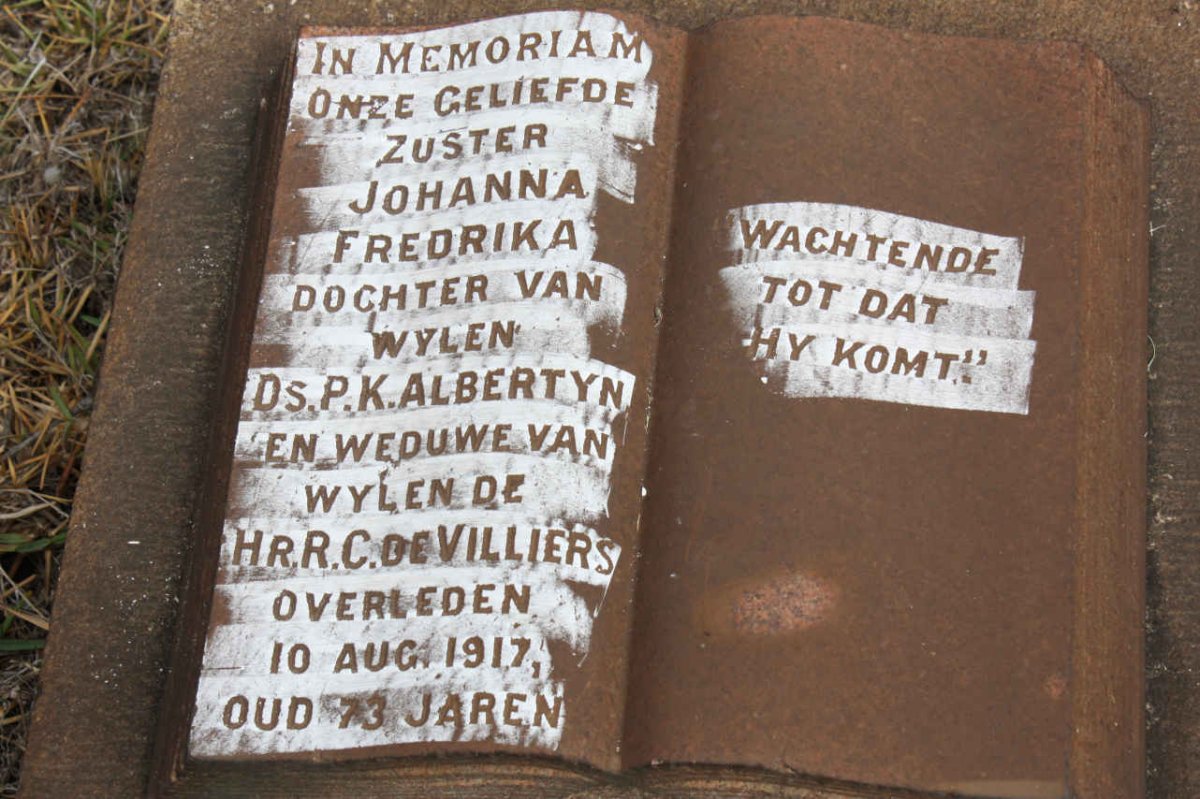 In Memoriam
Onze Geliefde
Zuster
Johanna
Fredrika
Dochter van
Wylen
Ds. P. K. Albertyn
en Weduwe van
Wylen de
Hr. R. C. de Villiers
Overleden
10 Aug. 1917,
Oud 73 Jaren
Wachtende
tot dat
Hy komt."